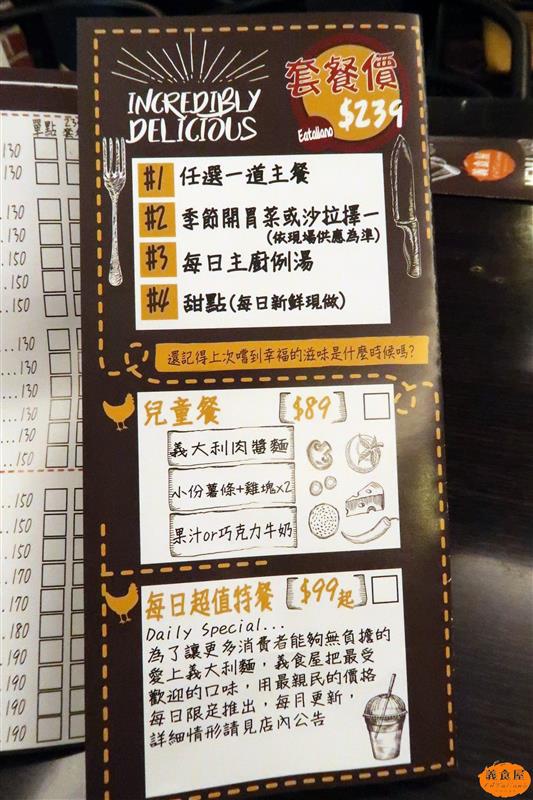 INCREDIBLY
DELICIOUS
套餐價
$239
Eataliano
#1 任選一道主餐
#2 季節開胃菜或沙拉擇一
(依現場供應為準)
#3 每日主廚例湯
#4 甜點(每日新鮮現做)
還記得上次嚐到幸福的滋味是什麼時候嗎?
兒童餐 $89
義大利肉醬麵
小份薯條+雞塊x2
果汁or巧克力牛奶
每日超值特餐 $99起
Daily Special...
為了讓更多消費者能夠無負擔的
愛上義大利麵,義食屋把最受
歡迎的口味,用最親民的價格
每日限定推出,每月更新,
詳細情形請見店內公告
單點
130
130
130
150
150
130
130
130
130
130
150
150
150
150
170
170
180
190
190
190
190
義食屋
義食屋